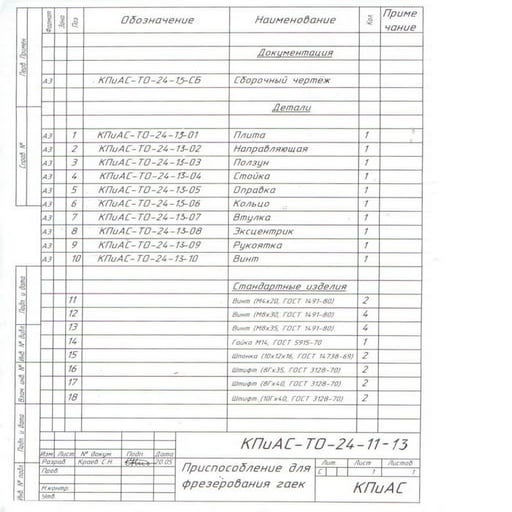 Формат Зона Поз Обозначение Наименование Кол Приме
чание
Перв. Примен.
Справ. №
Документация
А3 КПиАС-ТО-24-13-СБ Сборочный чертеж
Детали
А3 1 КПиАС-ТО-24-13-01 Плита 1
А3 2 КПиАС-ТО-24-13-02 Направляющая 1
А3 3 КПиАС-ТО-24-13-03 Ползун 1
А3 4 КПиАС-ТО-24-13-04 Стойка 1
А3 5 КПиАС-ТО-24-13-05 Оправка 1
А3 6 КПиАС-ТО-24-13-06 Кольцо 1
А3 7 КПиАС-ТО-24-13-07 Втулка 1
А3 8 КПиАС-ТО-24-13-08 Эксцентрик 1
А3 9 КПиАС-ТО-24-13-09 Рукоятка 1
А3 10 КПиАС-ТО-24-13-10 Винт 1
Стандартные изделия
11 Винт (М4х20, ГОСТ 1491-80) 2
12 Винт (М8х30, ГОСТ 1491-80) 4
13 Винт (М8х35, ГОСТ 1491-80) 4
14 Гайка М14, ГОСТ 5915-70 1
15 Шпонка (10х12х16, ГОСТ 14738-69) 2
16 Штифт (8Гх35, ГОСТ 3128-70) 2
17 Штифт (8Гх40, ГОСТ 3128-70) 2
18 Штифт (10Гх40, ГОСТ 3128-70) 2
Подп. и дата
Инв. № дубл.
Взам. инв. №
Подп. и дата
Инв. № подл.
КПиАС-ТО-24-11-13
Изм. Лист № докум. Подп. Дата
Разраб. Краев С.Н. 20.05
Пров.
Н.контр.
Утв.
Приспособление для
фрезерования гаек
Лит. Лист Листов
С 1 1
КПиАС